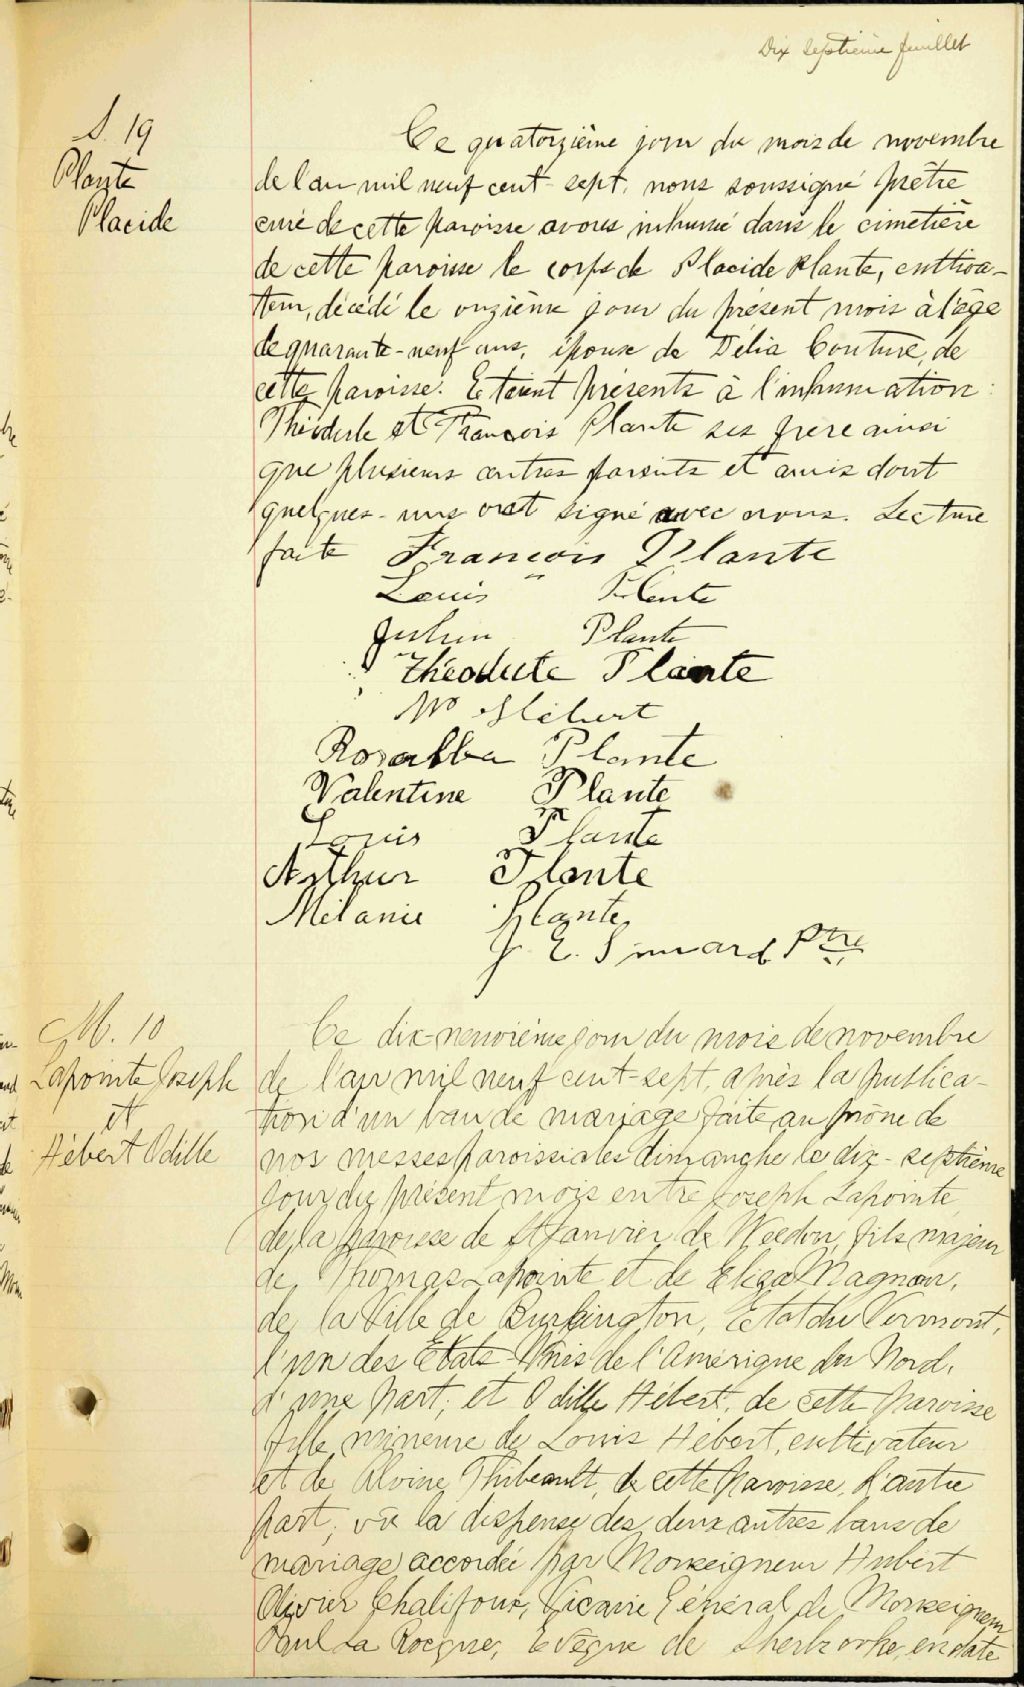 Dix septième feuillet
S. 19
Plante
Placide
Ce quatorzième jour du mois de novembre
de l'an mil neuf cent-sept, nous soussigné prêtre
curé de cette paroisse avons inhumé dans le cimetière
de cette paroisse le corps de Placide Plante, cultiva-
teur, décédé le onzième jour du présent mois à l'âge
de quarante-neuf ans, époux de Délia Couture, de
cette paroisse. Etaient présents à l'inhumation :
Théodule et François Plante ses frère ainsi
que plusieurs autres parents et amis dont
quelques-uns ont signé avec nous. Lecture
faite François Plante
Louis Plante
Julien Plante
Théodule Plante
Wm Hébert
Rosalba Plante
Valentine Plante
Louis Plante
Arthur Plante
Mélanie Plante
J. E. Simard Ptre
M. 10
Lapointe Joseph
et
Hébert Odille
Ce dix-neuvième jour du mois de novembre
de l'an mil neuf cent-sept après la publica-
tion d'un ban de mariage faite au prône de
nos messes paroissiales dimanche le dix-septième
jour du présent mois entre Joseph Lapointe
de la paroisse de St Janvier de Weedon, fils majeur
de Thomas Lapointe et de Eliza Magnan,
de la Ville de Burlington, Etat du Vermont,
l'un des Etats-Unis de l'Amérique du Nord,
d'une part; et Odille Hébert, de cette paroisse
fille mineure de Louis Hébert, cultivateur
et de Alvine Thibeault, de cette paroisse, d'autre
part; vu la dispense des deux autres bans de
mariage accordée par Monseigneur Hubert
Olivier Chalifoux, Vicaire Général de Monseigneur
Paul La Rocque, Evêque de Sherbrooke, en date